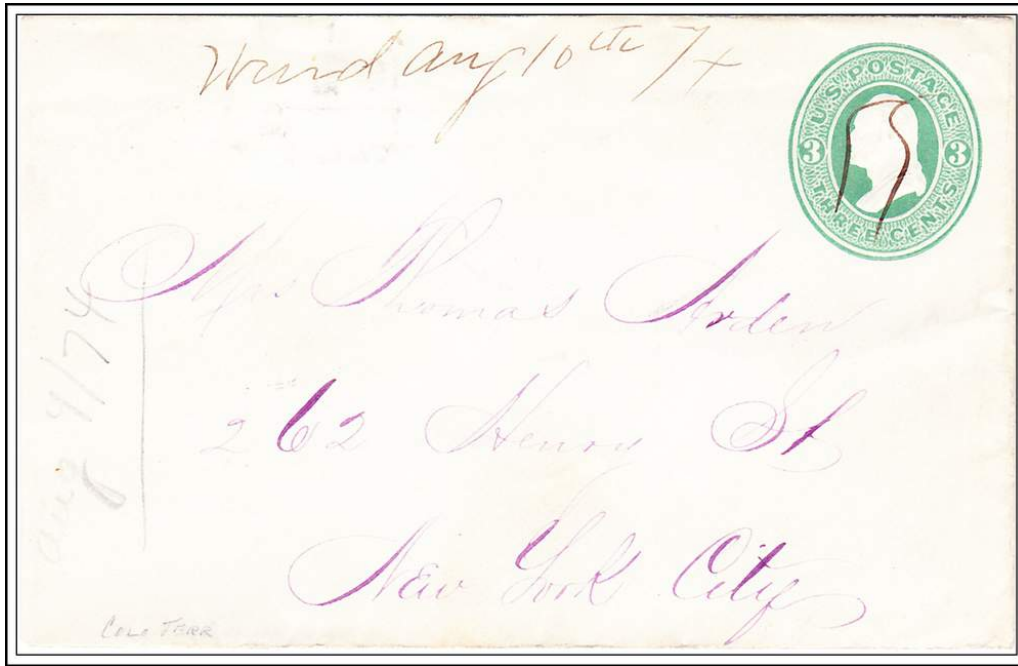 Ward Aug 10th 74
U.S. POSTAGE
3 3
THREE CENTS
Mrs Thomas Arden
262 Henry St
New York City
Aug 4/74
COLO TERR